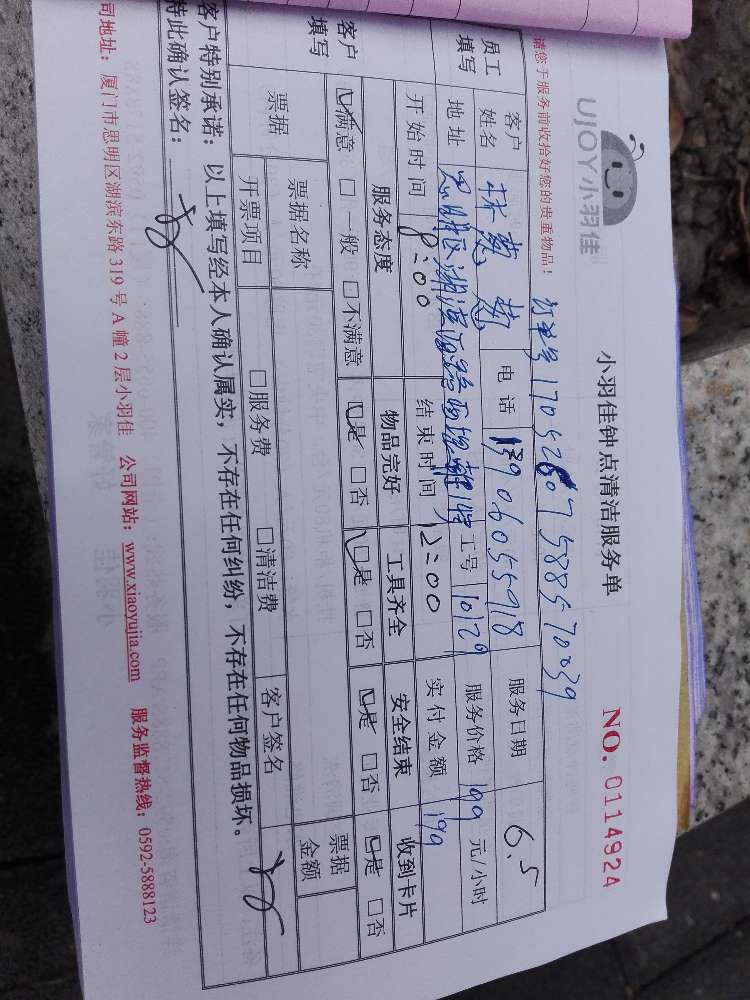 UJOY小羽佳
小羽佳钟点清洁服务单
NO. 0114924
请您于服务前收拾好您的贵重物品！
员工填写
客户姓名
电话 13906055918
服务日期 6.5
地址
工号 10129
服务价格 199 元/小时
开始时间 8:00
结束时间 12:00
实付金额 199
客户填写
服务态度
物品完好
工具齐全
安全结束
收到卡片
满意 □一般 □不满意
是 □否
是 □否
是 □否
是 □否
票据
票据名称
票据金额
开票项目
□服务费 □清洁费
客户签名
客户特别承诺：以上填写经本人确认属实，不存在任何纠纷，不存在任何物品损坏。
特此确认签名：
司地址：厦门市思明区湖滨东路319号A幢2层小羽佳 公司网站：www.xiaoyujia.com 服务监督热线：0592-5888123